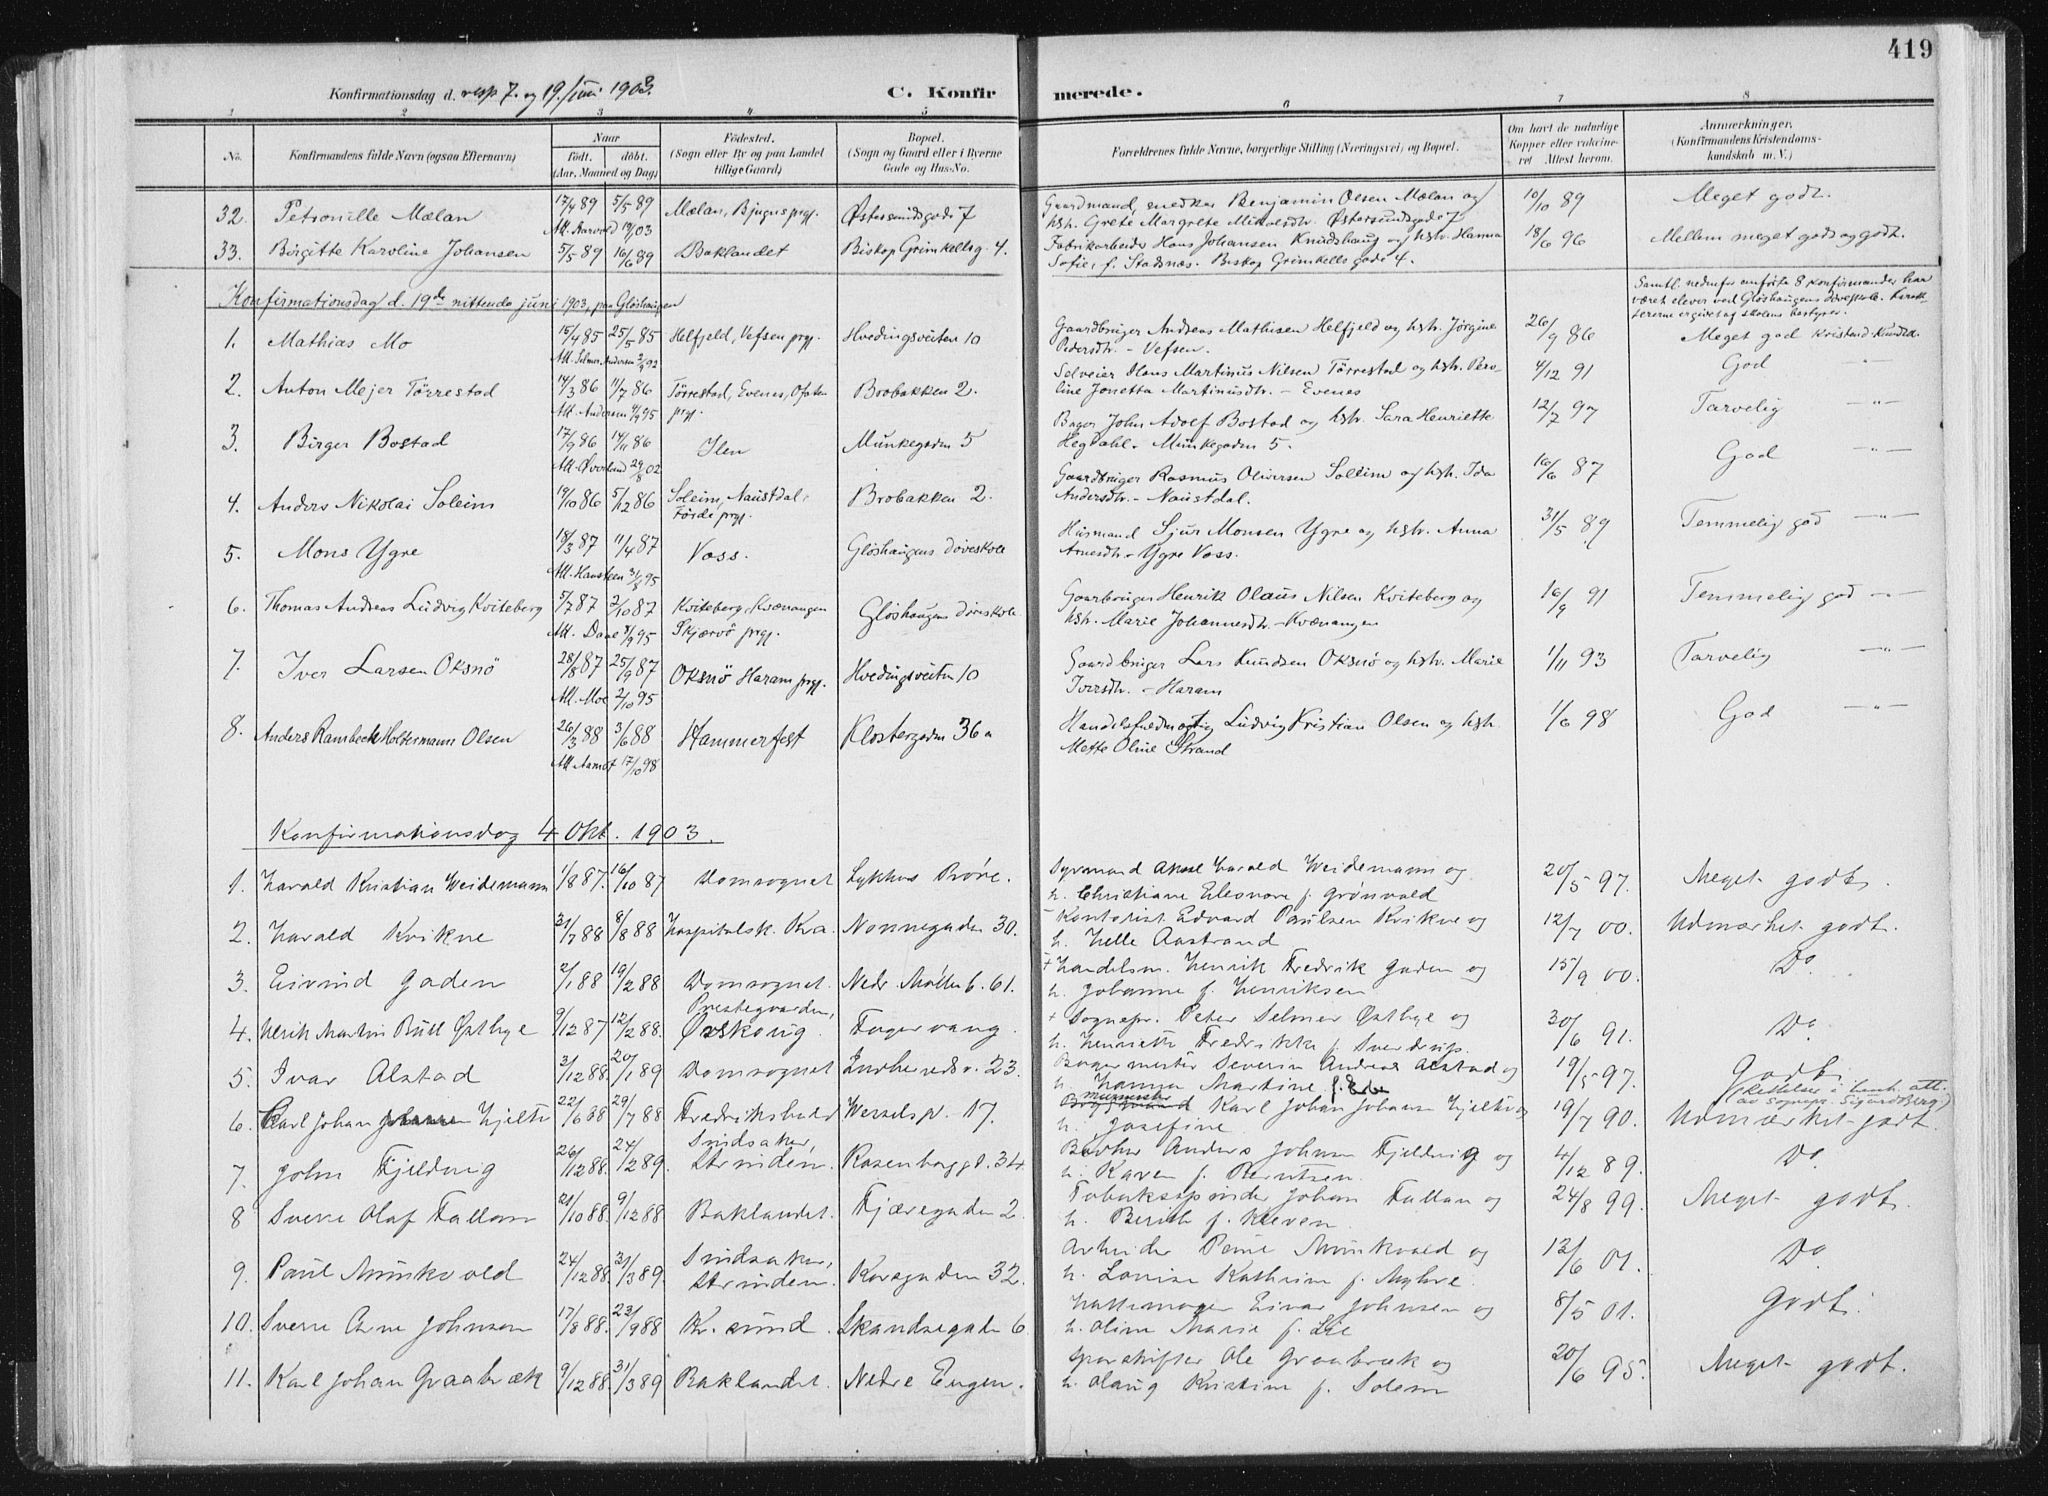 419
Konfirmationsdag d. resp 7. og 19. juni 1903. C. Konfirmerede.
1 2 3 " 5 6 7 8
No. Konfirmandens fulde Navn (ogsaa Efternavn) Naar födt. döbt. (Aar, Maaned og Dag) Födested. (Sogn eller By og paa Landet tillige Gaard) Bopæl. (Sogn og Gaard eller i Byerne Gade og Hus-No. Forældrenes fulde Navne, borgerlige Stilling (Næringsvei) og Bopæl. Om havt de naturlige Kopper eller vaccineret Attest herom. Anmærkninger. (Konfirmandens Kristendomskundskab m. V.)
32. Petronille Mælan 17/4 89 5/5 89 Mælan, Bjugns prgj. Østersundsgade 7 Gaardmand, snedker Benjamin Olsen Mælan og 10/10 89 Meget godt.
Att. Aarvold 19/03 hstr. Grete Margrete Mikalsdtr. Østersundsgade 7
33. Birgitte Karoline Johansen 5/5 89 16/6 89 Baklandet Biskop Grimkellsg. 4. Fabrikarbeider Hans Johansen Knudshaug og hstr. Hanna 18/6 96 Mellem meget godt og godt.
Sofie, f. Stadsnæs. Biskop Grimkells gade 4.
Konfirmationsdag d. 19de nittende juni 1903, paa Gløshaugen
Samtl. nedenfor anførte 8 konfirmander har
været elever ved Gløshaugens døveskole. Karakt-
tererne er givet af skolens bestyrer.
1. Mathias Mo 15/4 85 25/5 85 Helfjeld, Vefsen prgj. Hvedingsveiten 10 Gaardbruger Andreas Mathisen Helfjeld og hstr. Jørgine 26/9 86 Meget god Kristend. kundsk.
Att. Selmer Andersen 2/9 92 Pedersdtr. - Vefsen.
2. Anton Mejer Törrestad 14/3 86 11/7 86 Törrestad, Evenes, Ofoten prgj. Brobakken 2. Selveier Hans Martinus Nilsen Törrestad og hstr. Pero- 4/12 91 God -"-
Att. Andersen 9/9 95 line Jonetta Martinusdtr. - Evenes
3. Birger Bostad 17/9 86 14/11 86 Ilen Munkegaden 5 Bager John Adolf Bostad og hstr. Sara Henriette 12/7 97 Tarvelig -"-
Att. Øverland 29/8 02 Hegdahl. - Munkegaden 5.
4. Anders Nikolai Soleim 19/10 86 5/12 86 Soleim, Naustdal, Förde prgj. Brobakken 2. Gaardbruger Rasmus Oliversen Solleim og hstr. Ida 16/6 87 God -"-
Andersdtr. - Naustdal.
5. Mons Ygre 18/3 87 11/4 87 Voss. Gløshaugens døveskole Husmand Sjur Monsen Ygre og hstr. Anna 31/5 89 Temmelig god -"-
Att. Hansteen 31/8 95 Arnesdtr. - Ygre Voss.
6. Thomas Andreas Ludvig Kviteberg 5/7 87 2/10 87 Kviteberg, Kvænangen Skjærvö prgj. Gløshaugens døveskole Gaarbruger Henrik Olaus Nilsen Kviteberg og 16/9 91 Temmelig god -"-
Att. Daae 8/9 95 hstr. Marie Johannesdtr. - Kvænangen
7. Iver Larsen Oksnö 28/8 87 25/9 87 Oksnö Haram prgj. Hvedingsveiten 10 Gaardbruger Lars Knudsen Oksnö og hstr. Marie 1/11 93 Tarvelig -"-
Att. Moe 2/10 95 Iversdtr. - Haram
8. Anders Rambech Holtermann Olsen 26/3 88 3/6 88 Hammerfest Klostergaden 36a Handelsfuldmægtig Ludvig Kristian Olsen og hstr. 1/6 98 God -"-
Att. Aamot 17/10 98 Mette Oline Strand
Konfirmationsdag 4 Okt. 1903.
1. Harald Kristian Weidemann 1/8 87. 16/10 87 Domsognet Lykkens Prøve. Styrmand Aksel Harald Weidemann og 20/5 97. Meget godt.
h. Christiane Eleonore f. Grønvold
2. Harald Kvikne 31/7 88 8/8 88 Hospitalsk. Kra. Nonnegaden 30. Kontorist Edvard Paulsen Kvikne og 12/7 00. Udmærket godt.
h. Helle Aastrand
3. Eivind Gaden 2/1 88 19/2 88 Domsognet. Nedr. Møllenb. 61. + Handelsm. Henrik Fredrik Gaden og 15/9 00. Do
h. Johanne f. Henriksen
4. Ulrik Martin Bull Østbye 9/12 87 12/2 88. Prestegaarden, Ørskoug Fagervang. + Sognepr. Peter Selmer Østbye og 30/6 91. Do
h. Henriette Fredrikke f. Sverdrup.
5. Ivar Alstad 3/12 88. 20/1 89 Domsognet Indherredsv. 23. Bagermester Severin Andreas Alstad og 19/5 97. Godt.
h. Hanna Martine f.
(Ledelse i henh. att. av sognepr. Sigurd Berg.)
6. Carl Johan Johansen Hjelte 22/6 88 29/7 88 Fredrikshald Wesselsg. 17. Karl Johan Johansen Hjelte og 19/7 90. Udmærket godt.
h. Josefine
7. John Fjeldvig 26/12 88. 24/2 89. Sundsaker, Strinden. Rosenborggt. 34. Anders Johnsen Fjeldvig og 4/12 89. Do
h. Karen f. Berntsen.
8 Sverre Olaf Fallan 21/10 88. 9/12 88 Baklandet. Fjæregaden 2. Tobakspinder Johan Fallan og 24/8 99. Meget godt.
h. Berith f. Kleven.
9. Paul Munkvold 24/12 88. 31/3 89. Sundsaker, Strinden. Korsgaden 32. Arbeider Peine Munkvold og 12/6 01. Do
h. Louise Kathrine f. Myhre.
10. Sverre Arne Johnsen 17/8 88. 23/9 88 Kr. sund. Skandsegaden 6 Hattemager Einar Johnsen og 8/5 01. Godt.
h. Oline Marie f. Lie
11. Karl Johan Graabræk 9/12 88. 31/3 89 Baklandet. Nedre Eugen. Sporskifter Ole Graabræk og 20/6 95. Meget godt.
h. Olaug Kristine f. Solem